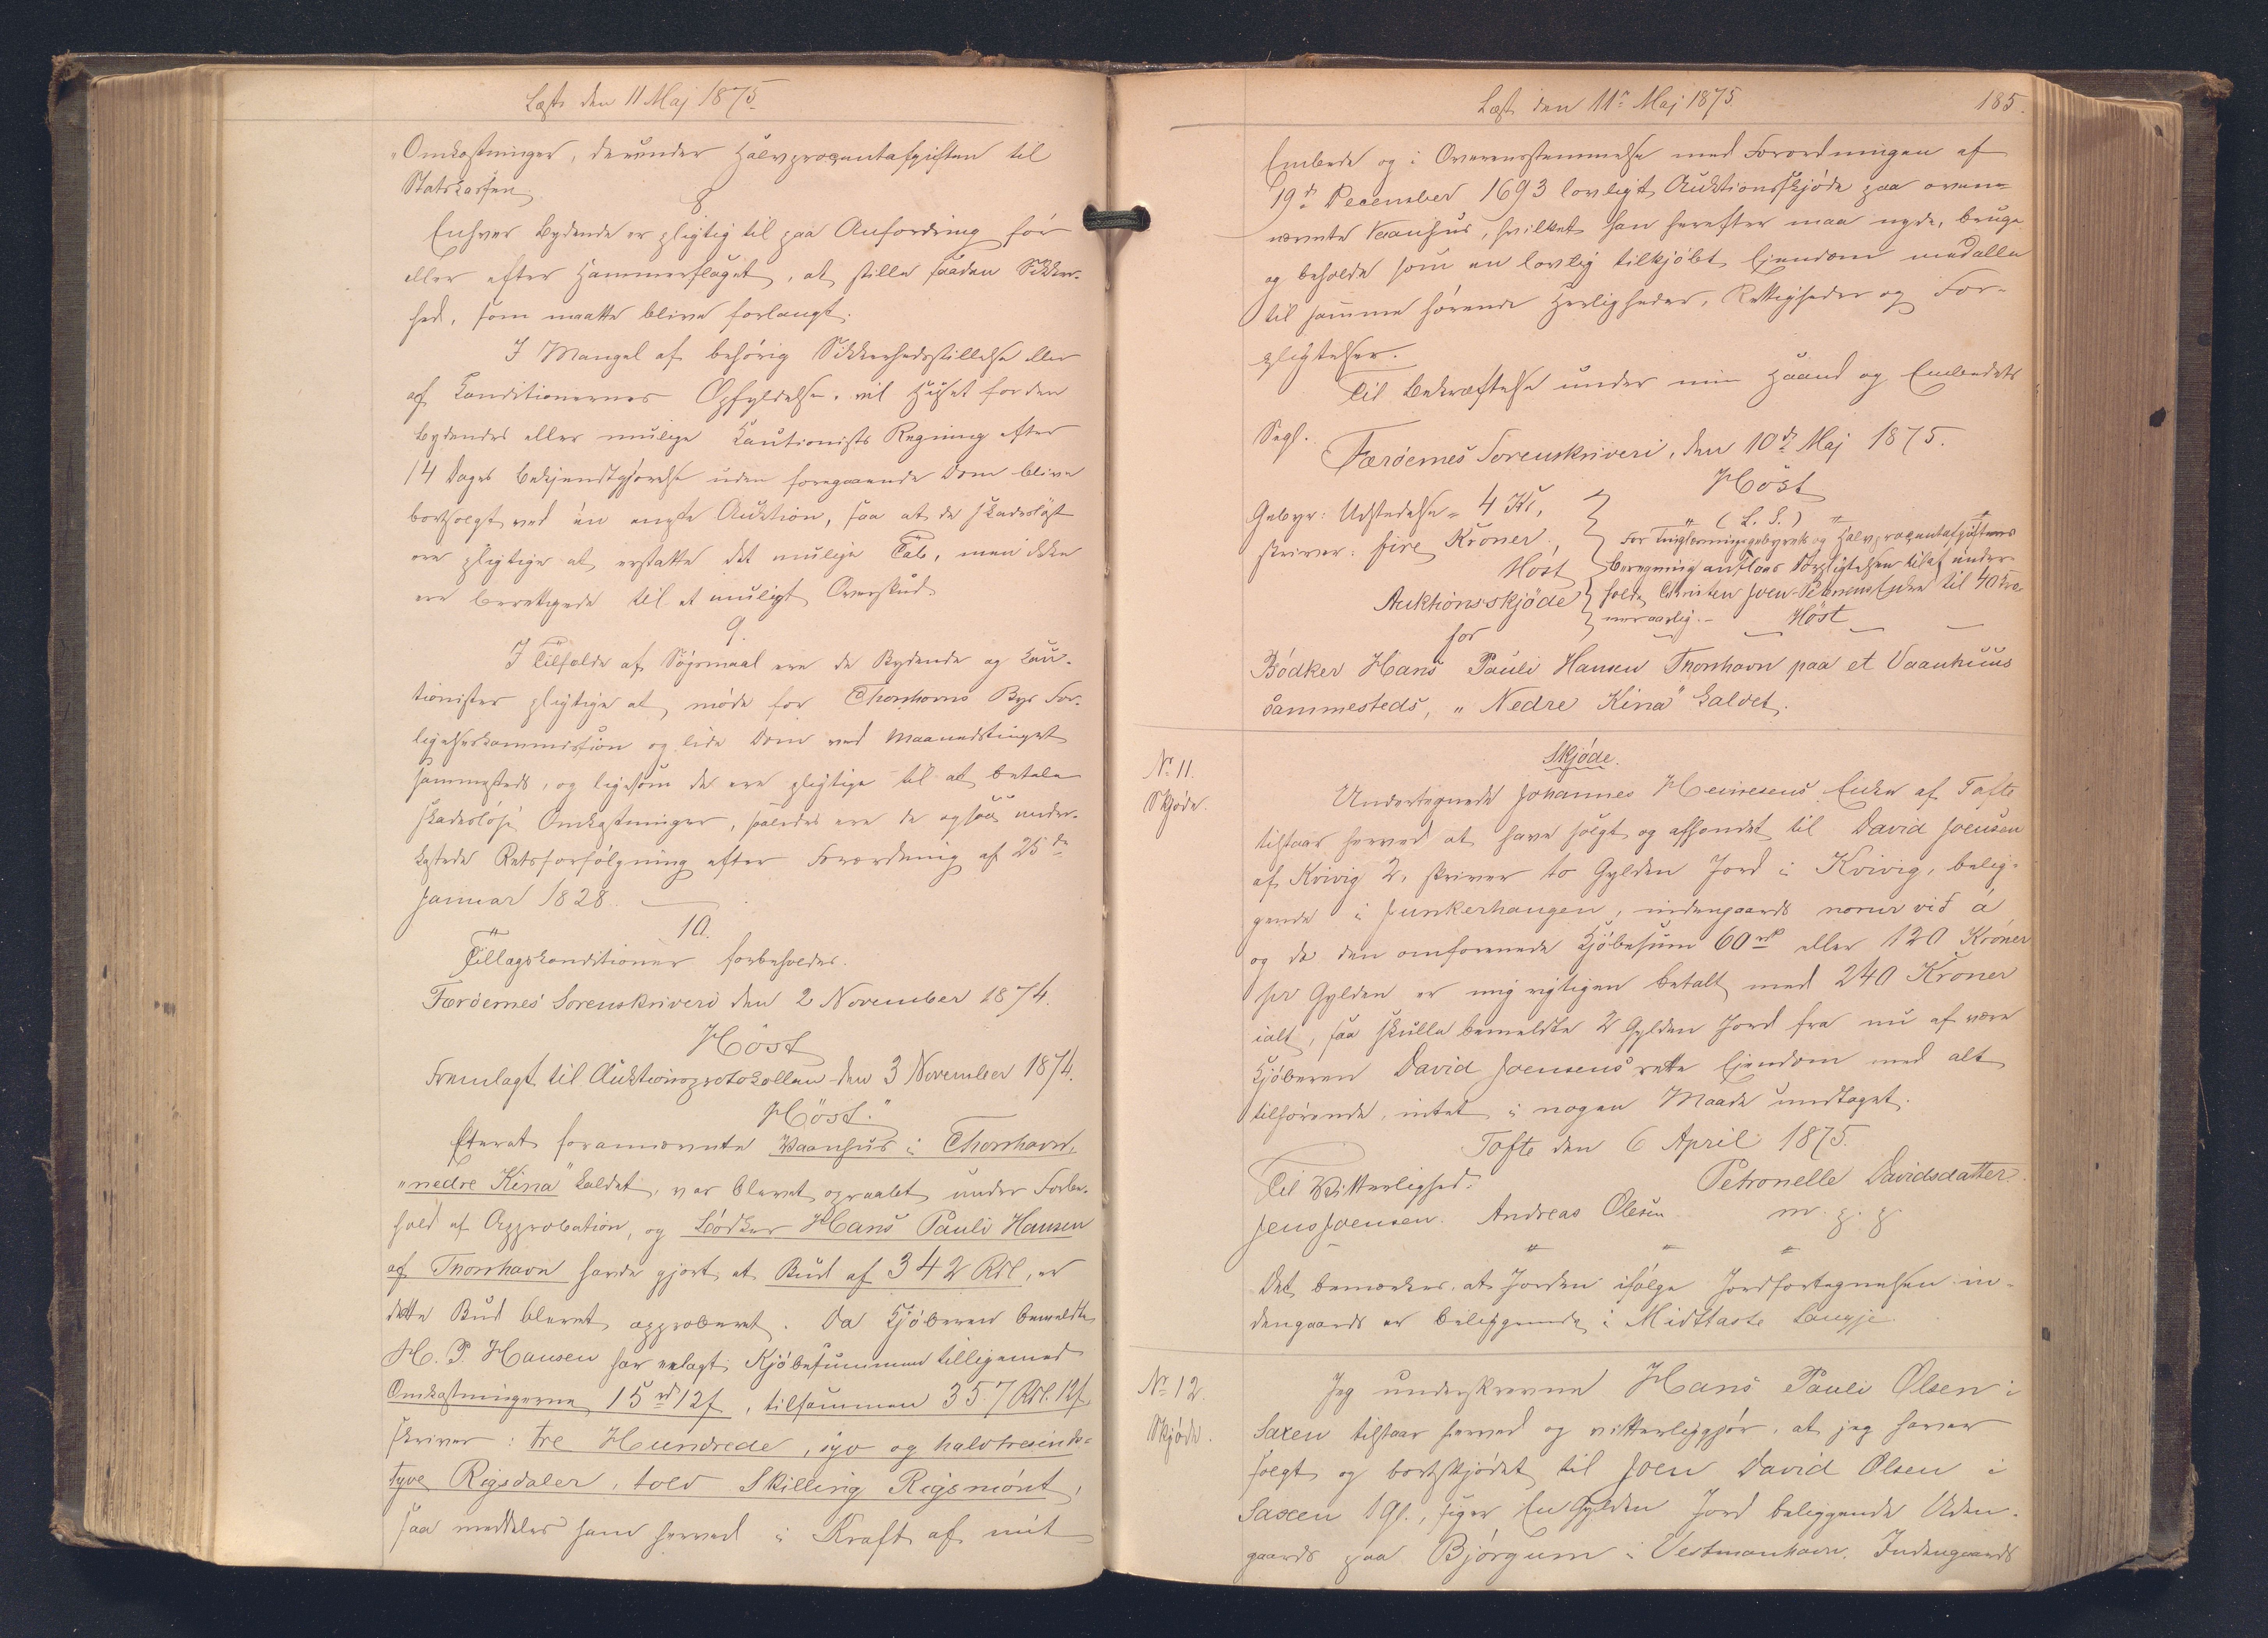 Læst den 11 Maj 1875
"Omkostninger, derunder Halvprocentafgiften til
Statskassen
8
Enhver Bydende er pligtig til paa Anfordring før
eller efter Hammerslaget, at stille saadan Sikker-
hed, som maatte blive forlangt.
I Mangel af behørig Sikkerhedsstillelse eller
af Konditionernes Opfyldelse, vil Huset for den
Bydendes eller mulige Kautionists Regning efter
14 Dages Bekjendtgjørelse uden foregaaende Dom blive
bortsolgt ved én enkelt Auktion, saa at de skadesløst
ere pligtige at erstatte det mulige Tab, men ikke
ere berettigede til et muligt Overskud
9.
I Tilfælde af Søgsmaal ere de Bydende og Kau-
tionister pligtige at møde for Thorshavns Byes For-
ligelseskommission og lide Dom ved Maanedstinget
sammesteds, og ligesom de ere pligtige til at betale
skadesløse Omkostninger, saaledes ere de ogsaa under-
kastede Retsforfølgning efter Forordning af 25de
Januar 1828.
10.
Tillægskonditioner forbeholdes.
Færöernes Sorenskriveri den 2 November 1874.
Höst
Fremlagt til Auktionsprotokollen den 3 November 1874.
Höst."
Efterat forannævnte Vaanhus i Thorshavn,
"nedre Kina" kaldet, var blevet opraabt under Forbe-
hold af Approbation, og Bödker Hans Pauli Hansen
af Thorshavn havde gjort et Bud af 342 Rdl, er
dette Bud blevet approberet. Da Kjøberen bemeldte
H. P Hansen har erlagt Kjøbesummen tilligemed
Omkostningerne 15 rd 12 s, tilsammen 357 Rdl. 12 s
skriver: tre Hundrede, syv og halvtresinds-
tyve Rigsdaler, tolv Skilling Rigsmönt,
saa meddeles ham herved i Kraft af mit
Læst den 11te Maj 1875
185.
Embede og i Overensstemmelse med Forordningen af
19de December 1693 lovligt Auktionsskjøde paa oven-
nævnte Vaanhus, hvilket han herefter maa nyde, bruge
og beholde som en lovlig tilkjøbt Ejendom med alle
til samme hørende Herligheder, Rettigheder og For-
pligtelser.
Til Bekræftelse under min Haand og Embedets
Segl.
Færöernes Sorenskriveri, den 10de Maj 1875.
Höst
(L. S.)
Gebyr: Udstedelse = 4 Kr,
skriver: fire Kroner,
Höst
For Tinglæsningsgebyrets og Halvprocentafgiftens
Beregning anslaaes Forpligtelsen til at under-
holde Christen Joen Petersens Enke til 40 Kro-
ner aarlig. - Höst
Auktionsskjöde
for
Bödker Hans Pauli Hansen Thorshavn paa et Vaanhuus
sammesteds, "Nedre Kina" kaldet.
No 11.
Skjøde.
Skjøde.
Undertegnede Johannes Heinesens Enke af Tofte
tilstaar herved at have solgt og afhændet til David Joensen
af Kvivig 2, skriver to Gylden Jord i Kvivig, belig-
gende i Junkerhaugen, indengaards norur vid á
og da den omforenede Kjøbesum 60 rd eller 120 Kroner
pr Gylden er mig rigtigen betalt med 240 Kroner
ialt, saa skulle bemeldte 2 Gylden Jord fra nu af være
Kjøberen David Joensens rette Ejendom med alt
tilhørende, intet i nogen Maade undtaget.
Tofte den 6 April 1875.
Til Vitterlighed.
Petronelle Davidsdatter.
Jens Joensen. Andreas Olesen
m. f. P.
Det bemærkes, at Jorden ifølge Jordfortegnelsen in-
dengaards er beliggende i Midttaste Laugje
No 12.
Skjøde.
Jeg underskrevne Hans Pauli Olsen i
Saxen tilstaar herved og vitterliggjør, at jeg haver
solgt og bortskjødet til Joen David Olsen i
Saxen 1 Gl., siger En Gylden Jord beliggende Uden-
gaards paa Bjørgum i Vestmanhavn. Indengaards